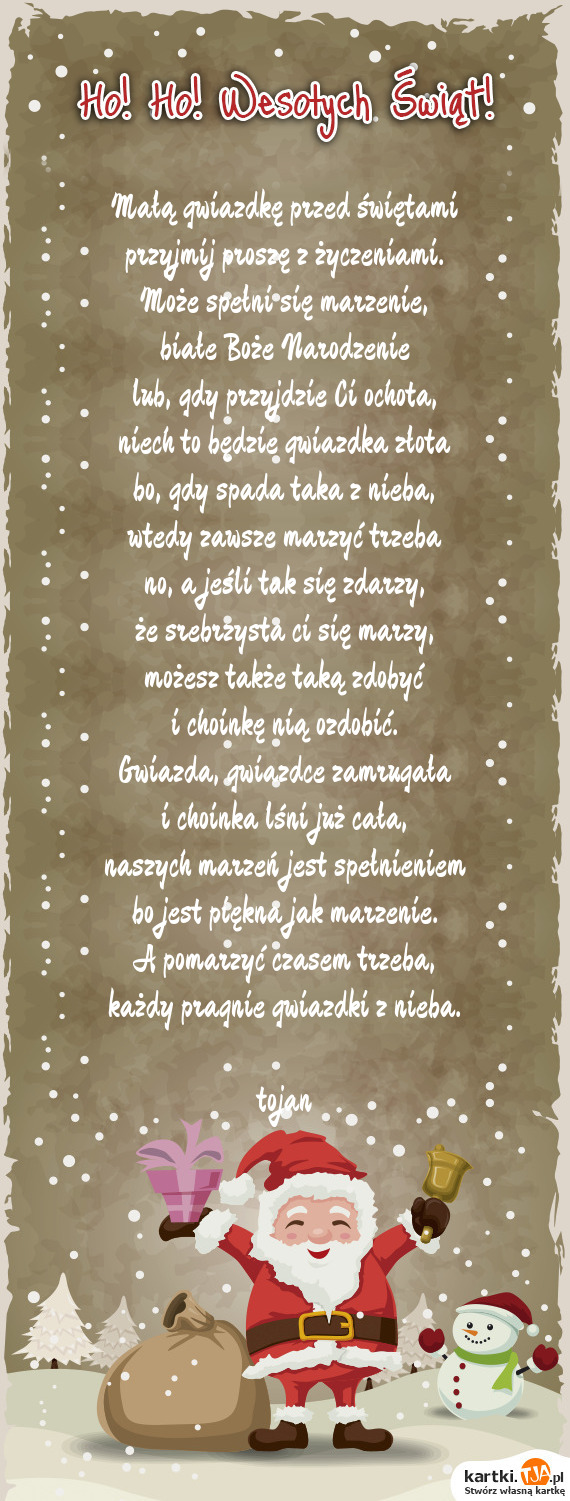 Ho! Ho! Wesołych Świąt!
Małą gwiazdkę przed świętami
przyjmij proszę z życzeniami.
Może spełni się marzenie,
białe Boże Narodzenie
lub, gdy przyjdzie Ci ochota,
niech to będzie gwiazdka złota
bo, gdy spada taka z nieba,
wtedy zawsze marzyć trzeba
no, a jeśli tak się zdarzy,
że srebrzysta ci się marzy,
możesz także taką zdobyć
i choinkę nią ozdobić.
Gwiazda, gwiazdce zamrugała
i choinka lśni już cała,
naszych marzeń jest spełnieniem
bo jest piękna jak marzenie.
A pomarzyć czasem trzeba,
każdy pragnie gwiazdki z nieba.
tojan
kartki.TJA.pl
Stwórz własną kartkę